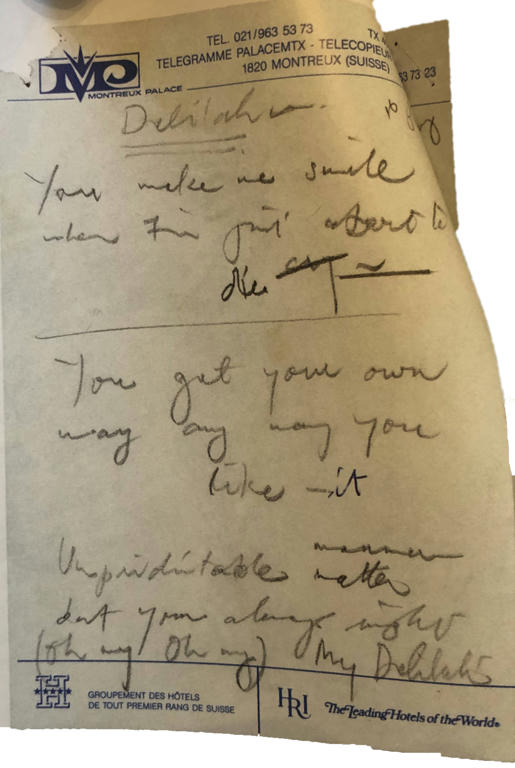 TEL. 021/963 53 73
TELEGRAMME PALACEMTX - TELECOPIEU
1820 MONTREUX (SUISSE)
TX
53 73 23
MP
MONTREUX PALACE
Delilah
You make me smile
when I'm just about to
die cry
You get your own
way any way you
like it
Unpridictable manner
matter
but your always right
(Oh my Oh my) My Delilah
H
GROUPEMENT DES HÔTELS
DE TOUT PREMIER RANG DE SUISSE
HRI
The Leading Hotels of the World®